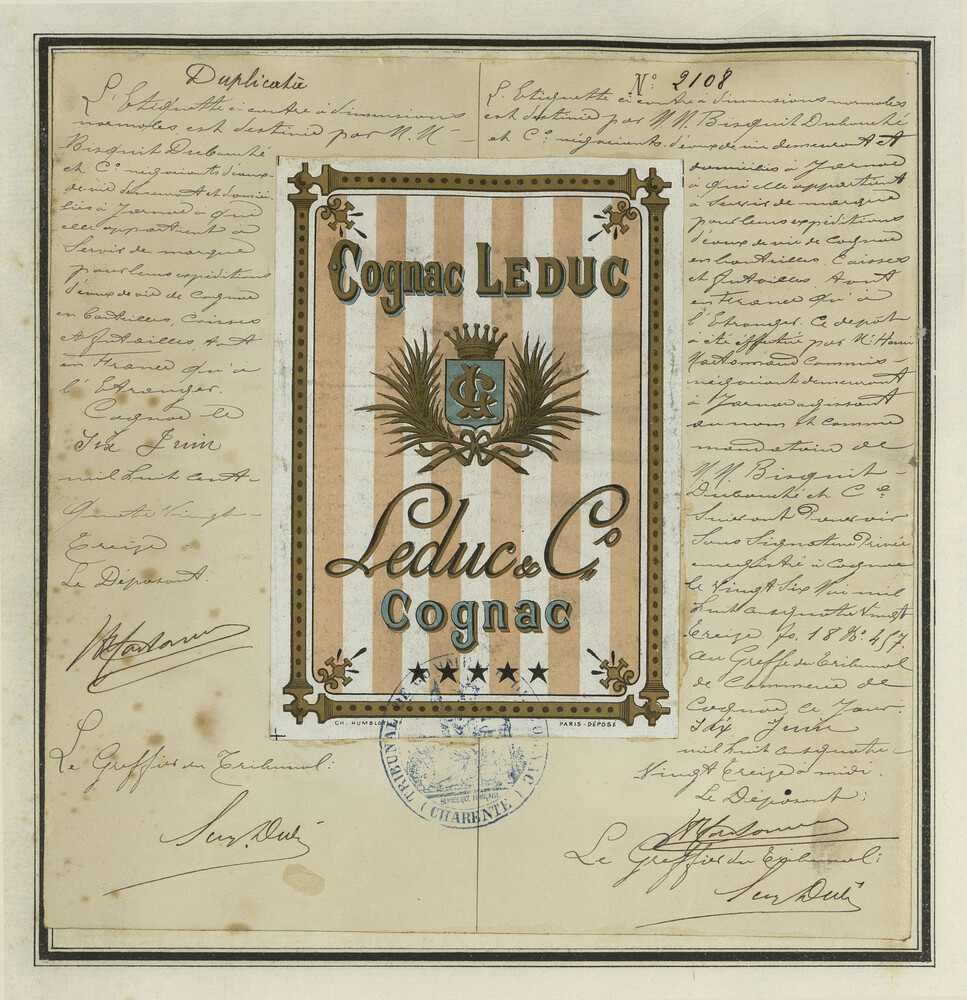 Duplicata
L'Etiquette ci contre à dimensions
normales est destinée par M. M-
Bisquit Dubouché
et Cº négociants d'eaux-
de-vie demeurant et domici-
liés à Jarnac à qui
elle appartient à
Servir de marque
pour leurs expéditions
d'eaux de vie de Cognac
en bouteilles, Caisses
et futailles tant
en France qu'à
l'Etranger.
Cognac le
Six Juin
mil huit cent
quatre Vingt-
Treize
Le Déposant.
Le Greffier du Tribunal:
Cognac LEDUC
Leduc & Cº
Cognac
★★★★★
CH. HUMBLOT
PARIS-DÉPOSÉ
TRIBUNAL DE COMMERCE COGNAC
RÉPUBLIQUE FRANÇAISE
(CHARENTE)
Nº 2108
L'Etiquette ci contre à dimensions normales
est destinée par M M. Bisquit Dubouché
et Cº négociants d'eaux de vie demeurant et
domiciliés à Jarnac
à qui elle appartient
à Servir de marque
pour leurs expéditions
d'eaux de vie de Cognac
en bouteilles, Caisses
et futailles, tant
en France qu'à
l'Etranger. Ce dépôt
a été effectué par Mr Henri
commis-
négociant demeurant
à Jarnac agissant
au nom et comme
mandataire de
M M. Bisquit-
Dubouché et Cie
Suivant Pouvoir
Sous Signature Privée
enregistré à Cognac
le Vingt Six Mai mil
huit cent quatre Vingt
Treize, fo. 18 Nº 457.
au Greffe du Tribunal
de Commerce de
Cognac ce Jour.
Six Juin
mil huit cent quatre-
Vingt Treize à midi.
Le Déposant:
Le Greffier du Tribunal: